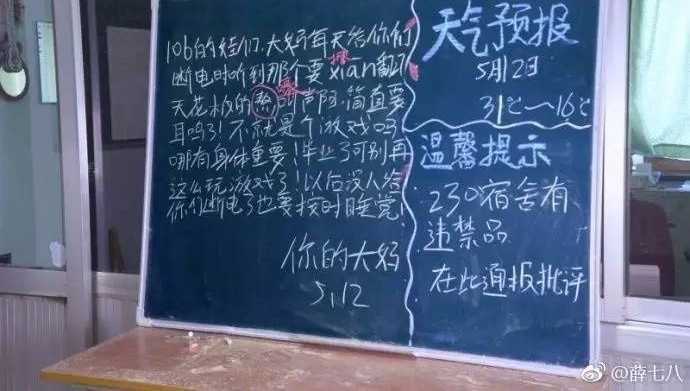 106的娃们,大妈每天给你们
断电时听到那个要xian翻了
天花板的叫声阿.简直要
耳鸣了!不就是个游戏吗
哪有身体重要!毕业了可别再
这么玩游戏了!以后没人给
你们断电了也要按时睡觉!
你的大妈
5.12
天气预报
5月12日
31℃~16℃
温馨提示
230宿舍有
违禁品
在此通报批评
@薛七八